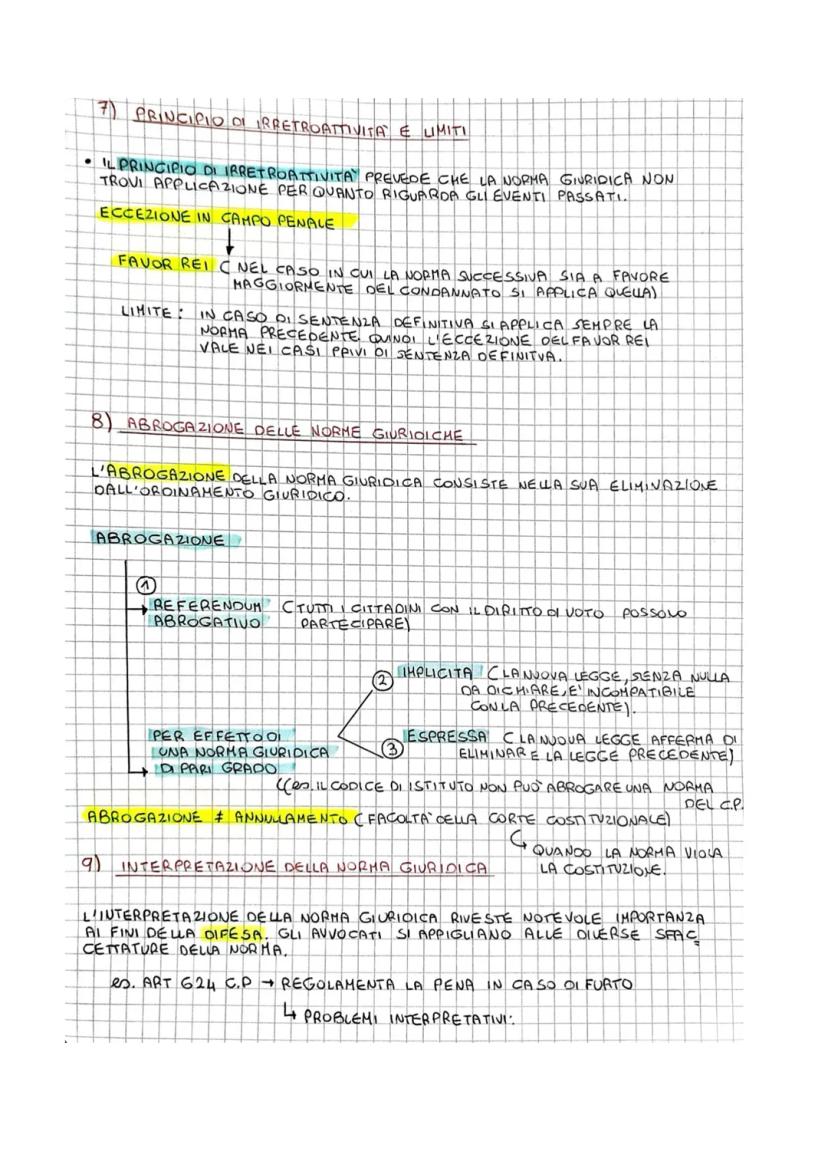 7) PRINCIPIO DI IRRETROATTIVITA' E LIMITI
• IL PRINCIPIO DI IRRETROATTIVITA' PREVEDE CHE LA NORMA GIURIDICA NON
TROVI APPLICAZIONE PER QUANTO RIGUARDA GLI EVENTI PASSATI.
ECCEZIONE IN CAMPO PENALE
↓
FAVOR REI ( NEL CASO IN CUI LA NORMA SUCCESSIVA SIA A FAVORE
MAGGIORMENTE DEL CONDANNATO SI APPLICA QUELLA)
LIMITE : IN CASO DI SENTENZA DEFINITIVA SI APPLICA SEMPRE LA
NORMA PRECEDENTE, QUINDI L'ECCEZIONE DEL FAVOR REI
VALE NEI CASI PRIVI DI SENTENZA DEFINITVA.
8) ABROGAZIONE DELLE NORME GIURIDICHE
L'ABROGAZIONE DELLA NORMA GIURIDICA CONSISTE NELLA SUA ELIMINAZIONE
DALL'ORDINAMENTO GIURIDICO.
ABROGAZIONE
①
→ REFERENDUM (TUTTI I CITTADINI CON IL DIRITTO DI VOTO POSSONO
ABROGATIVO PARTECIPARE)
② IMPLICITA (LA NUOVA LEGGE, SENZA NULLA
DA DICHIARE, E' INCOMPATIBILE
CON LA PRECEDENTE).
PER EFFETTO DI ③ ESPRESSA (LA NUOVA LEGGE AFFERMA DI
UNA NORMA GIURIDICA ELIMINARE LA LEGGE PRECEDENTE)
→ DI PARI GRADO
((es. IL CODICE DI ISTITUTO NON PUO' ABROGARE UNA NORMA
DEL C.P.
ABROGAZIONE ≠ ANNULLAMENTO (FACOLTA' DELLA CORTE COSTITUZIONALE)
↳ QUANDO LA NORMA VIOLA
LA COSTITUZIONE.
9) INTERPRETAZIONE DELLA NORMA GIURIDICA
L'INTERPRETAZIONE DELLA NORMA GIURIDICA RIVESTE NOTEVOLE IMPORTANZA
AI FINI DELLA DIFESA. GLI AVVOCATI SI APPIGLIANO ALLE DIVERSE SFAC
CETTATURE DELLA NORMA.
es. ART 624 C.P → REGOLAMENTA LA PENA IN CASO DI FURTO
↳ PROBLEMI INTERPRETATIVI: